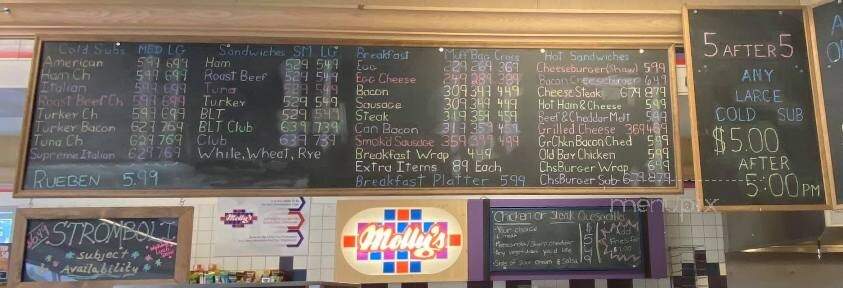 Cold Subs MED LG
American 599 699
Ham Ch 599 699
Italian 599 699
Roast Beef Ch 599 699
Turkey Ch 599 699
Turkey Bacon 629 769
Tuna Ch 629 769
Supreme Italian 629 769
RUEBEN 5.99
Sandwiches SM LG
Ham 529 549
Roast Beef 529 549
Tuna 529 549
Turkey 529 549
BLT 529 549
BLT Club 639 739
Club 639 739
White, Wheat, Rye
Breakfast Muff Bag Cross
Egg
Egg Cheese
Bacon 309 349 449
Sausage 309 349 449
Steak 319 359 459
Can Bacon
Smokd Sausage 359 399 499
Breakfast Wrap 449
Extra Items 89 Each
Breakfast Platter 599
Hot Sandwiches
Cheeseburger (Shaw) 599
Bacon Cheeseburger 649
Cheese Steak 679 879
Hot Ham & Cheese 599
Beef & Cheddar Melt 599
Grilled Cheese 369 469
Gr Chkn Bacon Ched 599
Old Bay Chicken 599
Chs Burger Wrap 699
Chs Burger Sub 679 879
5 AFTER 5
ANY
LARGE
COLD SUB
$5.00
AFTER
5:00 PM
menupix
STROMBOLI
subject
Availability
Molly's
Molly's
Chicken or Steak Quesadilla
Your choice
Side of sour cream & salsa